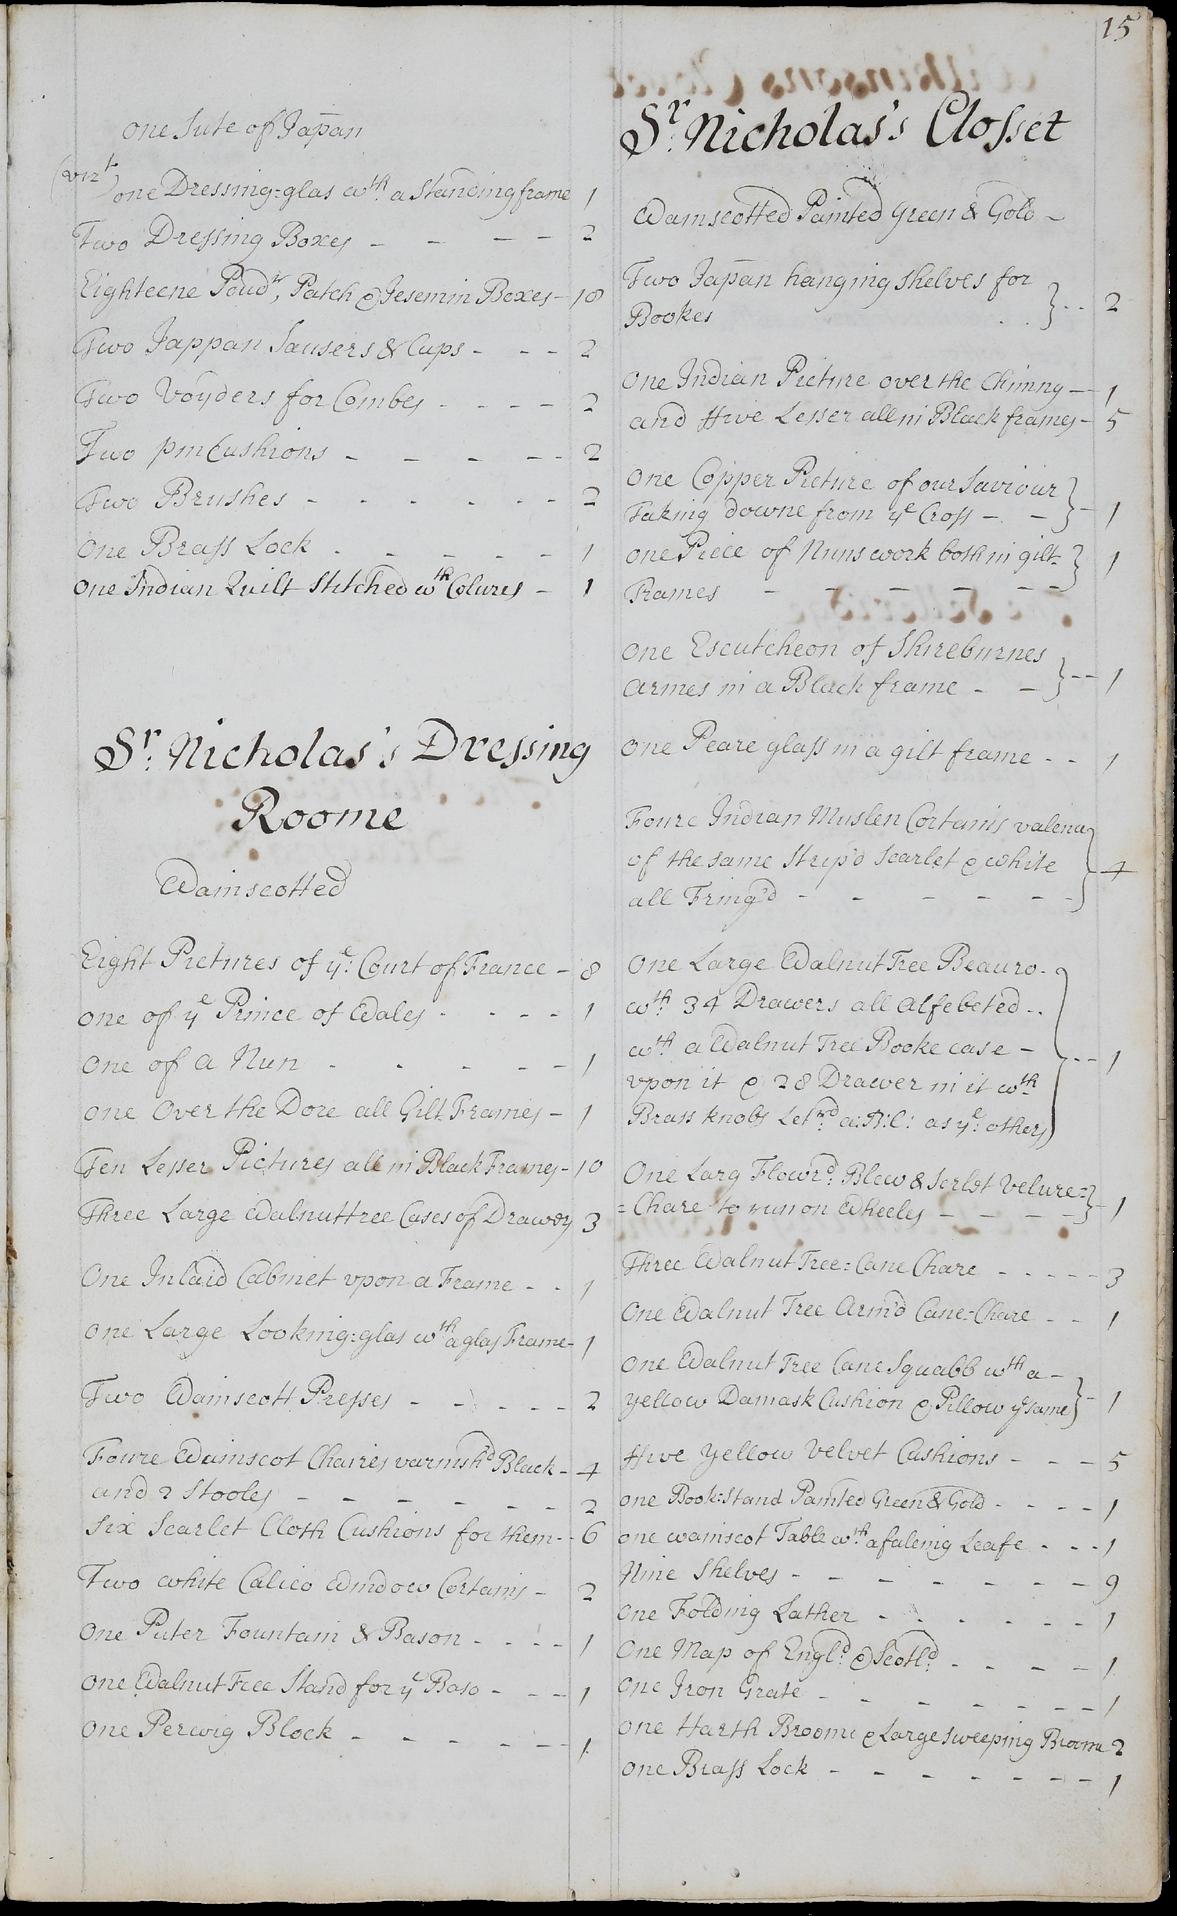 15
one Sute of Japan
(vizt) one Dressing=glas wth a Standing frame 1
Two Dressing Boxes - - - - 2
Eighteene Poudr, Patch & Jesemin Boxes - 18
Two Jappan Sausers & Cups - - - 2
Two Voyders for Combes - - - - 2
Two pincushions - - - - - - 2
Two Brushes - - - - - - - 2
One Brass Lock - - - - - - 1
one Indian Quilt Stitched wth Colures - 1
Sr. Nicholas's Dressing
Roome
Wainscotted
Eight Pictures of ye: Court of France - 8
one of ye Prince of Wales - - - - 1
One of a Nun - - - - - - 1
one Over the Dore all Gilt Frames - 1
Ten Lesser Pictures all in Black Frames - 10
Three Large Walnuttree Cases of Drawers 3
One Inlaid Cabinet vpon a Frame - - 1
one Large Looking=glas wth a glas Frame - 1
Two Wainscott Presses - - - - - 2
Foure Wainscot Chaires varnishd Black - 4
and 2 Stooles - - - - - - - 2
Six Scarlet Cloth Cushions for them - - 6
Two white Calico Window Cortains - 2
One Puter Fountain & Bason - - - - 1
One Walnut Tree Stand for ye Baso - - - 1
One Perwig Block - - - - - - 1
Sr. Nicholas's Closset
Wainscotted Painted Green & Gold -
Two Japan hanging shelves for
Bookes } - - 2
One Indian Picture over the Chimny - 1
and ffive Lesser all in Black frames - 5
One Copper Picture of our Saviour
Taking downe from ye Cross - - } - 1
one Piece of Nuns work both in gilt-
Frames - - - - - - } 1
One Escutcheon of Shireburnes
Armes in a Black frame - - } - - 1
One Peare glass in a gilt frame - - 1
Foure Indian Muslen Cortains valena
of the same Strip'd Scarlet & white
all Fring'd - - - - - - } 4
One Large Walnut Tree Beauro -
wth 34 Drawers all Alfebeted - -
wth a Walnut Tree Booke case -
vpon it & 28 Drawer in it wth
Brass knobs Letrd a:B:C: as ye: others } - - 1
One Larg Flowrd Blew & Scrlet Velure=
=Chare to run on Wheeles - - - - } 1
Three Walnut Tree=Cane Chare - - - - - 3
One Walnut Tree Arm'd Cane=Chare - - 1
One Walnut Tree Cane Squabb wth a -
yellow Damask Cushion & Pillow ye same } - 1
ffive yellow velvet Cushions - - - 5
one Book:Stand Painted Green & Gold - - - - 1
one wainscot Table wth a faleing Leafe - - - 1
Nine Shelves - - - - - - - 9
One Folding Lather - - - - - - 1
One Map of Engld. & Scotld. - - - - - 1
One Iron Grate - - - - - - - 1
One Harth Broome & Large sweeping Broome 2
one Brass Lock - - - - - - - 1